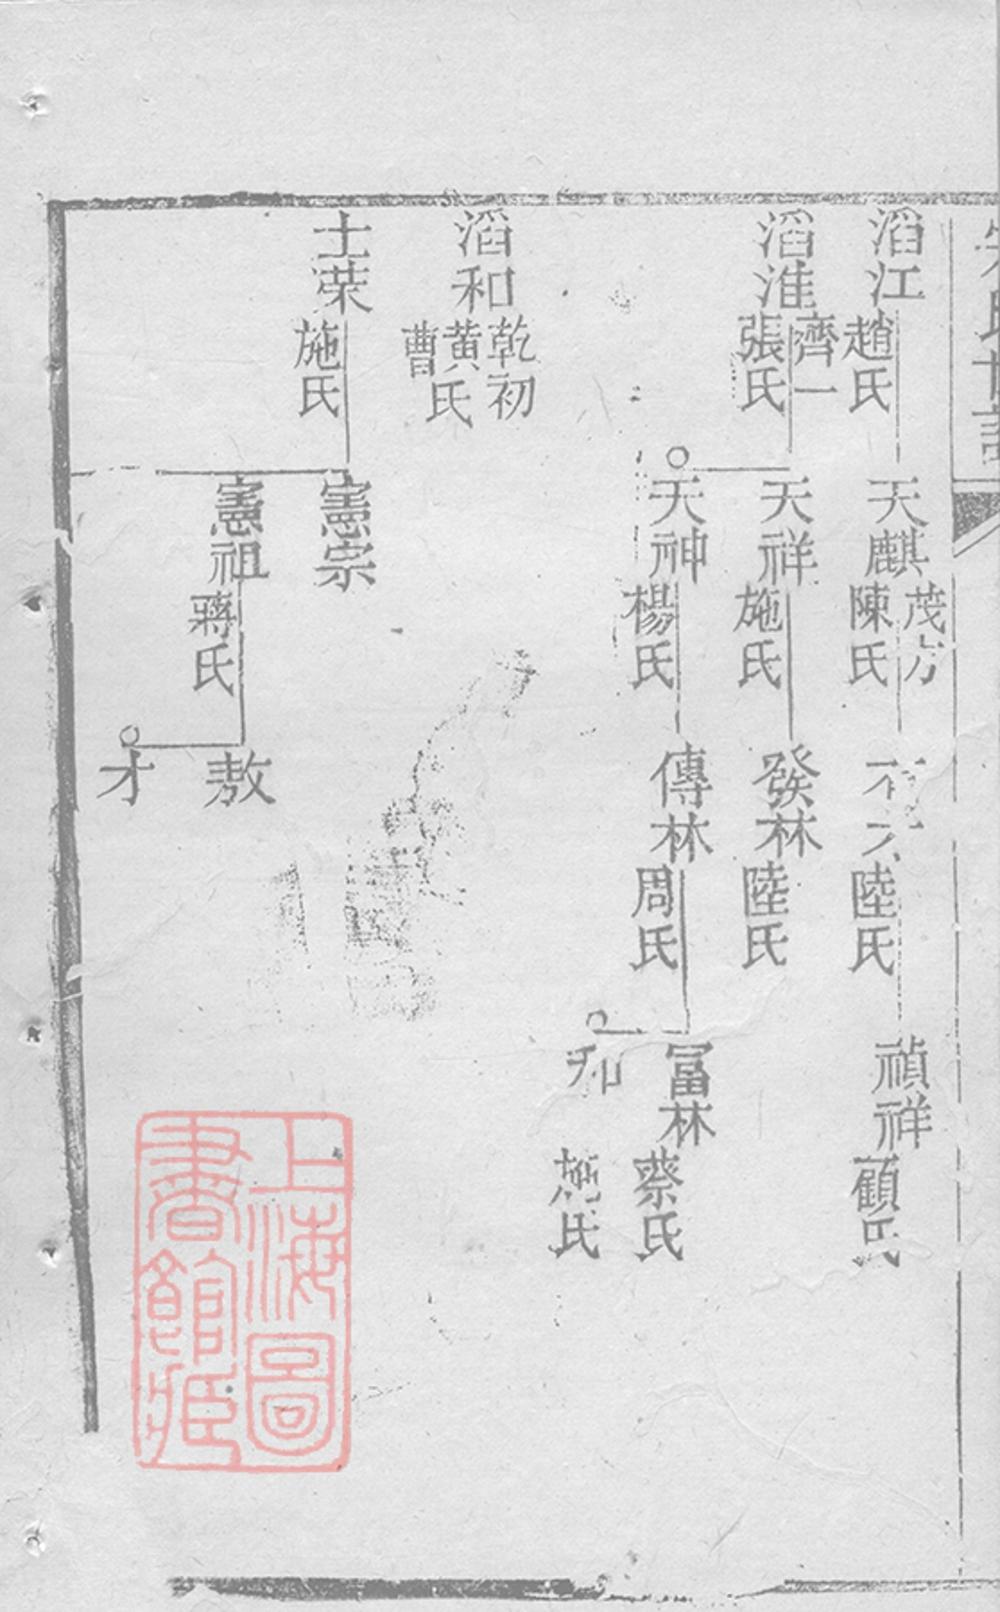 氏世譜
滔江
趙氏
天麒
茂方
陳氏
陸氏
禎祥
顧氏
滔淮
齊一
張氏
天祥
施氏
發林
陸氏
天神
楊氏
傳林
周氏
冨林
蔡氏
施氏
滔和
乾初
黄氏
曹
士荣
施氏
憲宗
憲祖
蔣氏
敖
才
上海圖
書館藏